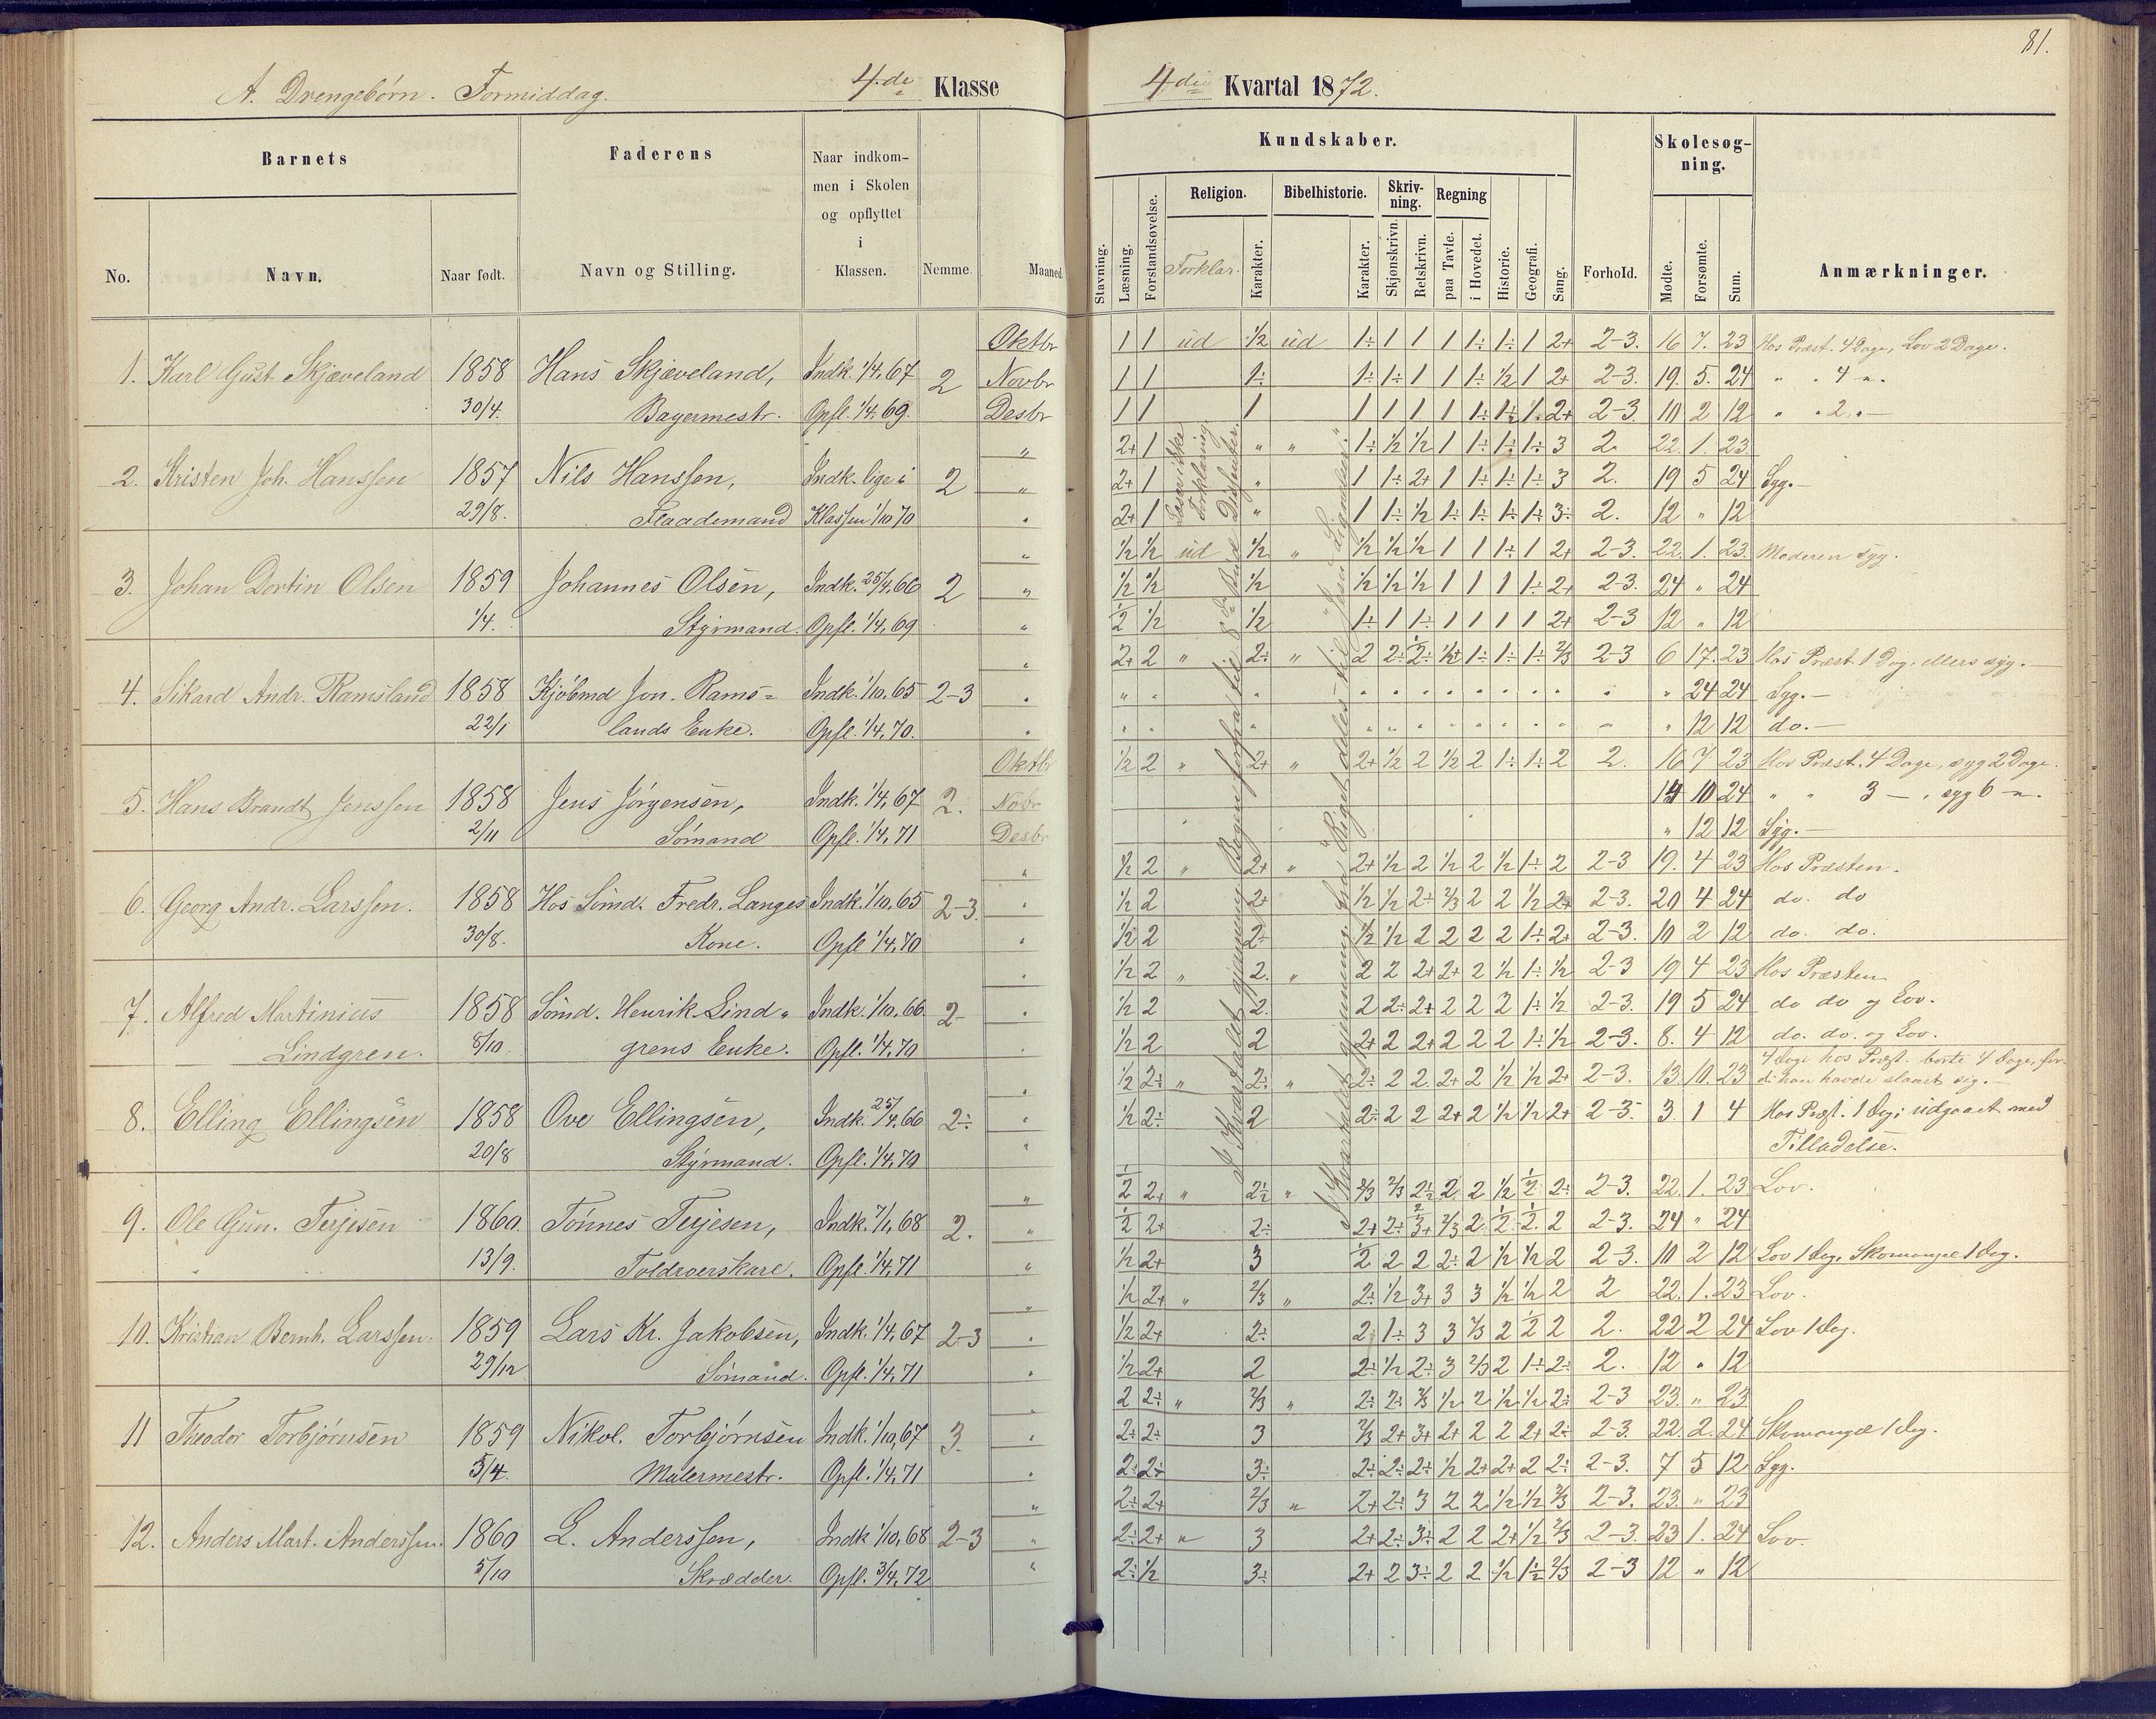 81.
A. Drengebörn. Formiddag. 4.de Klasse
4die Kvartal 1872.
Barnets
Faderens
Naar indkom-
men i Skolen
og opflyttet
i
Klassen.
No. Navn. Naar født. Navn og Stilling. Nemme. Maaned.
Kundskaber.
Skolesøg-
ning.
Religion. Bibelhistorie. Skriv-
ning. Regning
Stavning. Læsning. Forstandsøvelse. Forklar. Karakter. Karakter. Skjønskrivn. Retskrivn. paa Tavle. i Hovedet. Historie. Geografi. Sang. Forhold. Mødte. Forsømte. Sum. Anmærkninger.
Oktbr 1 1 ud 1/2 ud 1÷ 1 1 1 1÷ 1÷ 1 2+ 2-3. 16 7. 23 Hos Præst. 4 Dage, Lov 2 Dage.
1. Karl Gust Skjæveland 1858 Hans Skjæveland, Indk. 1/4, 67 2 Novbr 1 1 1÷ 1÷ 1÷ 1 1 1÷ 1/2 1 2+ 2-3. 19. 5. 24 " " 4 "
30/4. Bagermestr. Opfl. 1/4, 69. Desbr 1 1 1 1 1 1 1 1÷ 1÷ 1 2+ 2-3. 10 2 12 " " 2 "
" 2+ 1 " " 1÷ 1/2 1/2 1 1÷ 1÷ 1÷ 3 2. 22. 1. 23.
2. Kristen Joh. Hanssen 1857 Nils Hanssen, Indk. lige i 2 " 2+ 1 " 1 1÷ 2+ 1 1÷ 1÷ 1÷ 3 2. 19 5 24 Syg.
29/8. Flaademand Klassen 1/10 70 " 2+ 1 " 1 1÷ 1/2 1÷ 1÷ 1÷ 1÷ 3÷ 2. 12 " 12
" 1/2 1/2 ud 1/2 " 1/2 1/2 1/2 1 1 1÷ 1 2+ 2-3. 22. 1. 23. Moderen syg.
3. Johan Dortin Olsen 1859 Johannes Olsen, Indk. 25/4, 66 2 " 1/2 1/2 1/2 1/2 1/2 1/2 1 1 1 1÷ 2+ 2-3. 24 " 24
1/4. Styrmand. Opfl. 1/4, 69 " 1/2 1/2 1/2 1÷ 1 1÷ 1 1 1 1 2+ 2-3 12 " 12
" 2+ 2 " 2÷ " 2 2÷ 1÷ 1÷ 1÷ 2/3 2-3 6 17. 23 Hos Præst 1 Dag, ellers syg.
4. Sikard Andr. Ramsland 1858 Kjöbmd Jon. Rams= Indk. 1/10. 65 2-3 " " 24 24 Syg.
22/1 lands Enke. Opfl. 1/4, 70. " " 12 12 do.
Oktbr 1/2 2 " 2+ " 2+ 1/2 2 1/2 2 1÷ 1÷ 2 2. 16 7 23 Hos Præst. 4 Dage, syg 2 Dage.
5. Hans Brandt Jenssen 1858 Jens Jörgensen, Indk. 1/4, 67 2. Nobr 14 10 24 " " 3 —, syg 6 —
2/11 Sömand Opfl. 1/4, 71 Desbr " 12 12 Syg.
" 1/2 2 " 2+ " 2+ 1/2 2 1/2 2 1/2 1÷ 2 2-3 19. 4 23 Hos Præsten.
6. Georg Andr. Larssen. 1858 Hos Sömd. Fredr. Langes Indk. 1/10, 65 2-3. " 1/2 2 2+ 1/2 1/2 2÷ 2/3 2 2 1/2 2+ 2-3. 20 4 24 do. do
30/8. Kone. Opfl 1/4, 70 " 1/2 2 2÷ 1/2 1/2 2 2 2 2 1÷ 2+ 2-3. 10 2 12 do. do.
" 1/2 2 " 2. " 2 2 2+ 2+ 2 1/2 1÷ 1/2 2-3 19 4 23 Hos Præsten
7. Alfred Martinius 1858 Sömd. Henrik Lind " Indk. 1/10, 66 2- " 1/2 2 2. 2 2÷ 2+ 2 2 2 1÷ 1/2 2-3. 19 5 24 do do og Lov.
Lindgren. 8/10 grens Enke. Opfl. 1/4, 70 1/2 2 2 2+ 2 2+ 2 2 2 1÷ 1/2 2-3. 8. 4 12 do. do. og Lov.
" 1/2 2÷ " 2÷ " 2÷ 2 2. 2+ 2 1/2 1/2 2+ 2-3. 13 10. 23 4 Dage hos Præst. borte 4 Dage, for-
di han havde slaaet sig.
8. Elling Ellingsen 1858 Ove Ellingsen, Indk. 25/4, 66 2÷ " 1/2 2÷ 2 2÷ 2 2 2+ 2 1/2 1/2 2+ 2-3 3. 1 4 Hos Præst. 1 Dag; udgaaet med
20/8 Styrmand. Opfl. 1/4, 70 " Tilladelse.
" 1/2 2+ " " 2/3 2/3 2 2 1/2 1/2 2÷ 2-3. 22. 1. 23 Lov.
9. Ole Gun. Terjesen 1860. Tönnes Terjesen, Indk. 7/1, 68 2. " 1/2 2+ 2÷ 2+ 2÷ 2/3 2 1/2 1/2 2 2-3. 24 " 24
13/9. Toldroerskarl. Opfl. 1/4, 71 " 1/2 2+ 3 1/2 2 2 2÷ 2 1/2 1/2 2 2-3. 10 2 12 Lov 1 Dag, Skomangel 1 Dag.
" 1/2 2+ " 2/3 " 2÷ 1/2 3+ 3 3 1/2 1/2 2 2 22. 1. 23 Lov.
10. Kristian Bernh. Larssen. 1859 Lars Kr. Jakobsen, Indk. 1/4, 67 2-3 " 1/2 2+ 2÷ 2 1÷ 3 3 2/3 2 1/2 2 2. 22 2 24 Lov 1 Dag.
29/12 Sömand. Opfl. 1/4, 71 " 1/2 2+ 2 2÷ 1/2 2÷ 3 2/3 2 1÷ 2÷ 2. 12 " 12
" 2 2÷ " 2/3 " 2÷ 2÷ 2/3 1/2 2 1/2 1/2 2÷ 2-3 23. " 23
11 Theodor Torbjörnsen 1859 Nikol. Torbjörnsen Indk. 1/10, 67 3. " 2÷ 2÷ 3 2/3 2+ 3+ 2+ 2 2 2+ 2÷ 2-3. 22. 2. 24 Skomangel 1 Dag.
5/4. Malermestr. Opfl. 1/4, 71 " 2÷ 2÷ 3÷ 2÷ 2÷ 2÷ 1/2 2+ 2+ 2 2÷ 2-3. 7 5 12 Syg.
" 2÷ 2+ 2/3 " 2+ 2÷ 3 2 2 1/2 1/2 2/3 2-3. 23. " 23
12. Anders Mart. Anderssen. 1860 L. Anderssen, Indk 1/10, 68 2-3 " 2÷ 2+ " 3 2+ 2÷ 3÷ 2 2 2+ 1/2 2/3 2-3. 23 1. 24 Lov.
5/10 Skrædder. Opfl. 3/4, 72 " 2÷ 1/2 3÷ 2+ 2 3÷ 2 2 1/2 2/3 2-3 12 " 12
Læser ikke
Forklaring
Disfenter.
I Kvartalet gjennemg. Bogen forfra til 8de Bud
I Kvartalet gjennemg. fra "Riget deles" til "Jesu Lignelser".